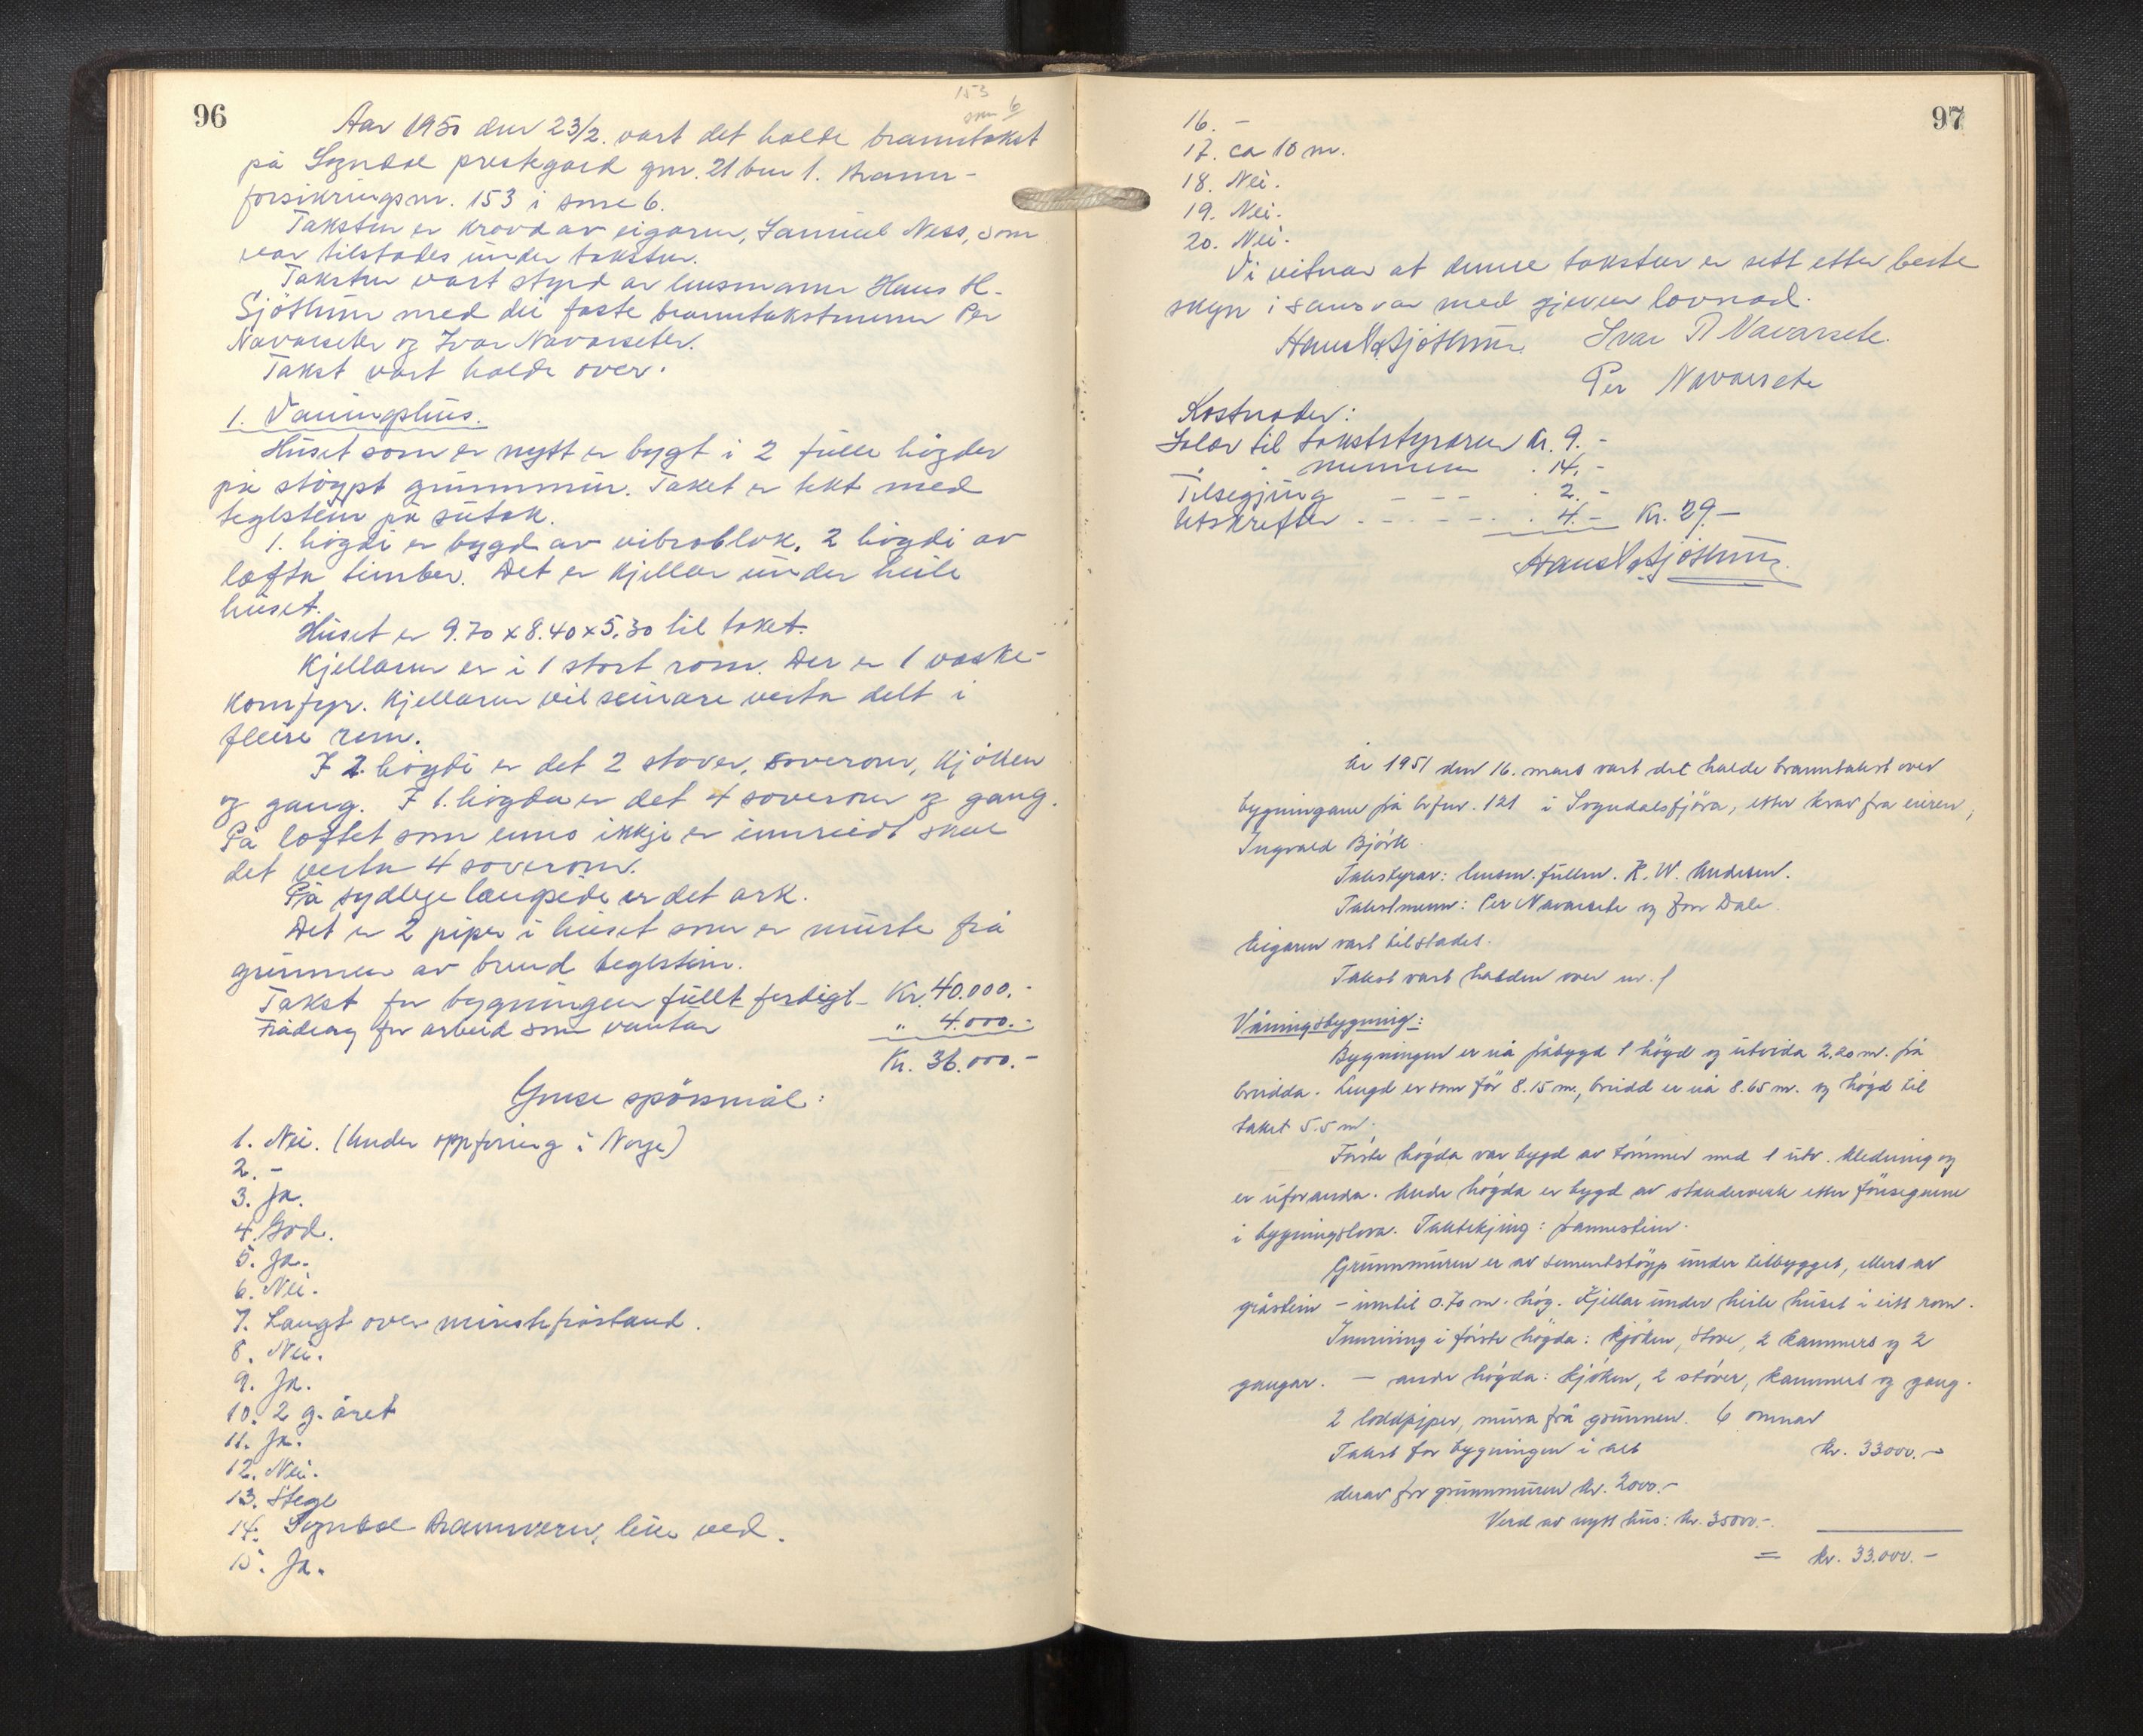 96
153
som 6
Aar 1950 den 23/2. vart det halde branntakst
på Sogndal prestegard gnr. 21 bnr 1. Brann-
forsikringsnr. 153 i sone 6.
Taksten er kravd av eigaren, Samuel Ness, som
var tilstades under taksten.
Taksten vart styrd av lensmann Hans H.
Sjötun med dei faste branntakstmenn Per
Navarsete og Ivar Navarsete.
Takst vart halde over:
1. Vaaningshus.
Huset som er nytt er bygt i 2 fulle högder
på stöypt grunnmur. Taket er tekt med
teglstein på sutak.
1. högdi er bygd av vibroblokk, 2 högdi av
lafta timber. Det er kjellar under heile
huset.
Huset er 9.70 x 8.40 x 5.30 til taket.
Kjellaren er i 1 stort rom. Der er 1 vaske-
komfyr. Kjellaren vil seinare verta delt i
fleire rom.
I 2. högdi er det 2 stover, soverom, kjöken
og gang. I 1. högda er det 4 soverom og gang.
På loftet som enno ikkje er innreidt skal
det verta 4 soverom.
På sydlege langside er det ark.
Det er 2 piper i huset som er murte frå
grunnen av brend teglstein.
Takst for bygningen fullt ferdigt Kr. 40.000.-
Frådrag for arbeid som vantar " 4.000.-
Kr. 36.000.-
Ymse spörsmål:
1. Nei. (Under oppföring i Norge)
2. -
3. Ja.
4. God.
5. Ja.
6. Nei.
7. Langt over minstefråstand.
8. Nei.
9. Ja.
10. 2 g. året
11. Ja.
12. Nei.
13. Stege
14. Sogndal brannvern, like ved.
15. Ja.
97
16. -
17. ca 10 m.
18. Nei.
19. Nei.
20. Nei.
Vi vitnar at denne taksten er sett etter beste
skyn i samsvar med gjeven lovnad.
Hans H Sjötun Ivar P Navarsete.
Per Navarsete
Kostnader:
Salær til takststyraren Kr. 9.-
" - mennene . 14.-
Tilsegjing - - - . 2.-
Utskrifter . - - - - - . . 4.- Kr. 29.-
Hans H Sjötun.
År 1951 den 16. mars vart det halde branntakst over
bygningane på brfnr. 121 i Sogndalsfjöra, etter krav fra eieren,
Ingvald Björk.
Takstyrar: lensm. fullm. R. W. Andersen.
Takstmenn: Per Navarsete og Jon Dale.
Eigaren vart tilstades.
Takst vart halden over nr. 1
Våningsbygning:
Bygningen er nå påbygd 1 högd og utvida 2.20 m. på
breidda. Lengd er som för 8.15 m., breidd er nå 8.65 m. og högd til
taket 5.5 m.
Förste högda var bygd av tömmer med 1 utv. kledning og
er uforandra. Andre högda er bygd av standerverk etter föresegnene
i bygningslova. Taktekjing: pannestein.
Grunnmuren er av sementstöyp under tilbygget, ellers av
gråstein - inntil 0.70 m. hög. Kjellar under heile huset i eitt rom.
Innreiing i förste högda: kjöken, stove, 2 kammers og 2
gangar. - andre högda: kjöken, 2 stover, kammers og gang.
2 loddpiper, mura frå grunnen. 6 omnar
Takst for bygningen i alt kr. 33000.-
derav for grunnmuren kr. 2000.-
Verd av nytt hus: kr. 35000.-
= kr. 33.000.-